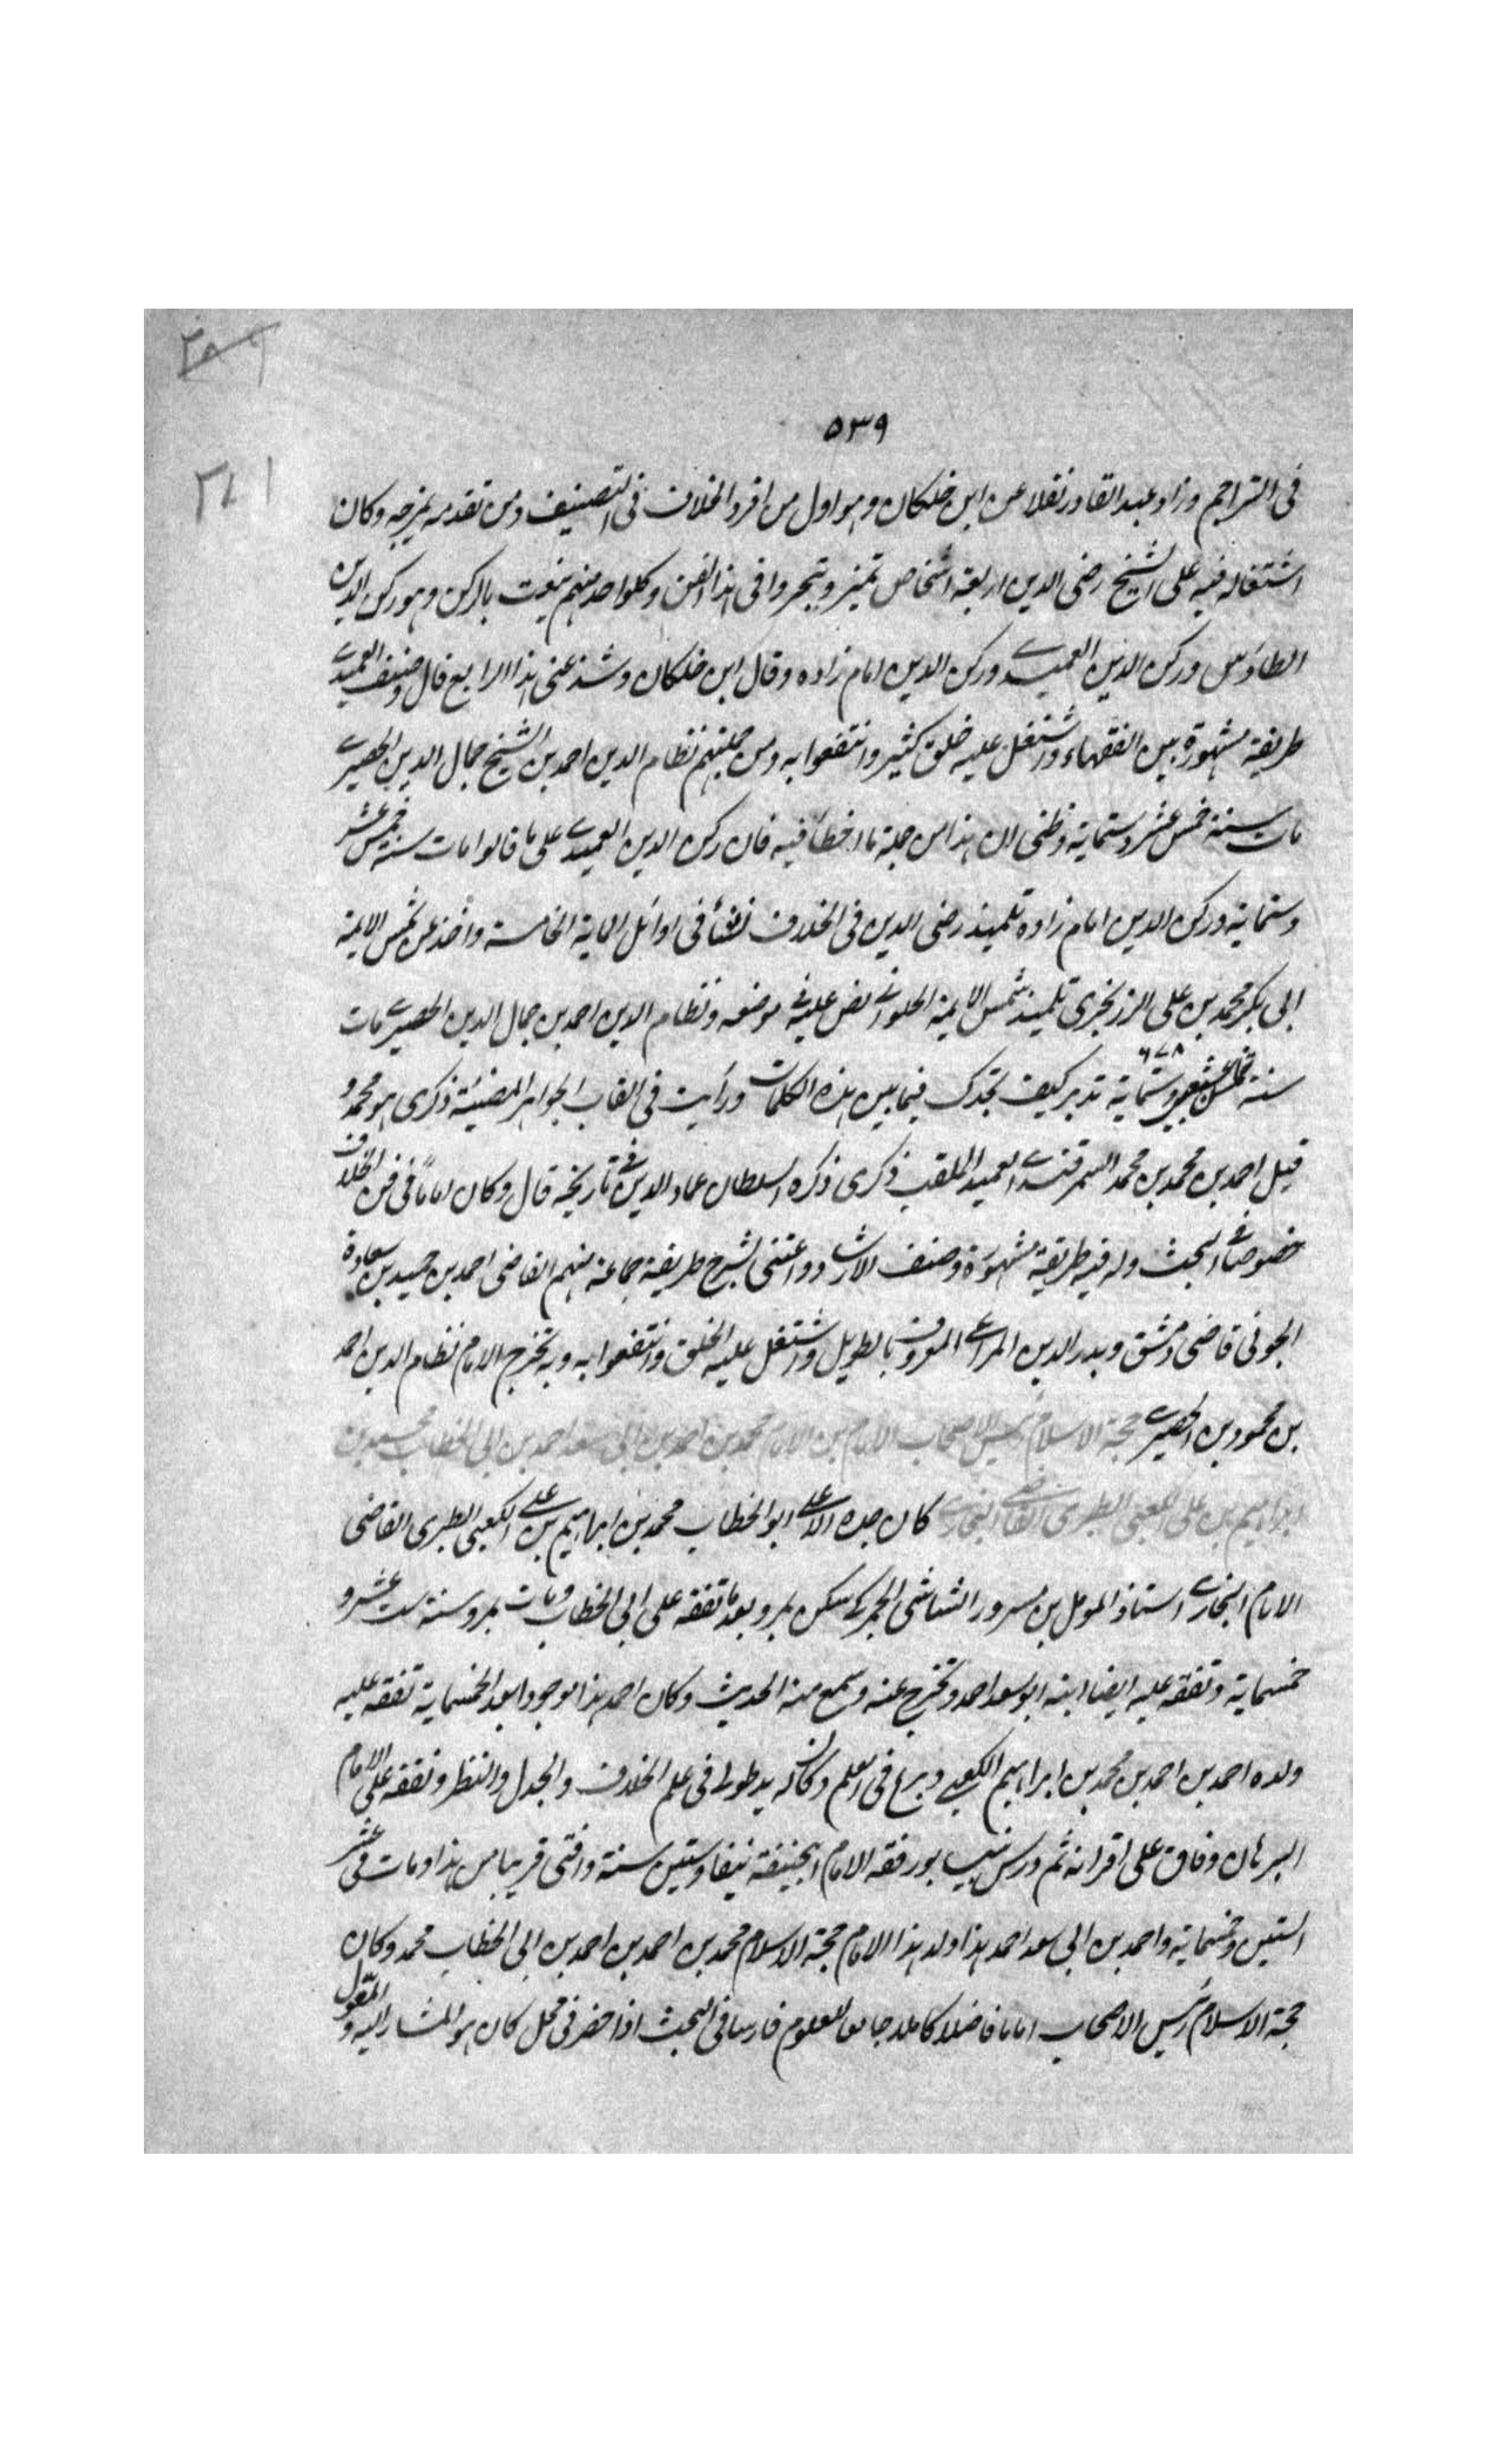 ٢٥٩
٥٣٩
٢٧١
فى التراجم وزاد عبد القادر نقلا عن ابن خلكان وهو اول من افرد الخلاف فى التصنيف ومن تقدمه يمزجه وكان
اشتغاله فيه على الشيخ رضى الدين اربعة اشخاص تميز وتبحروا فى هذا الفن وكلواحد منهم ينعت بالركن وهو ركن الدين
الطاوسى وركن الدين العميدى وركن الدين امام زاده وقال ابن خلكان وشذ عنى هذا الرابع قال وصنف العميدى
طريقة مشهورة بين الفقهاء واشتغل عليه خلق كثير وانتفعوا به ومن جملتهم نظام الدين احمد بن الشيخ جمال الدين الحصيرى
مات سنة خمس عشر وستماية وظنى ان هذا من جملة ما اخطأ فيه فان ركن الدين العميدى على ما قالوا مات سنة خمس عشر
وستماية وركن الدين امام زاده تلميذ رضى الدين فى الخلاف نشأ فى اوائل الماية الخامسة واخذ عن شمس الايمة
ابى بكر محمد بن على الزرنجرى تلميذ شمس الايمة الحلوانى نص عليه فى موضعه ونظام الدين احمد بن جمال الدين الحصيرى مات
سنة وستماية تدبر كيف تجدك فيما بين هذه الكلمات ورأيت فى القاب الجواهر المضيئة ذكرى هو محمد و
قيل احمد بن محمد بن محمد السمرقندى العميد الملقب ذكرى ذكره السلطان عماد الدين فى تاريخه قال وكان اماماً فى فن الخلاف
خصوصا فى البحث وله فيه طريقة مشهورة وصنف الارشاد واعتنى بشرح طريقة جماعة منهم القاضى احمد بن سعادة
الجونى قاضى دمشق وبدر الدين المراغى المعروف بالطويل واشتغل عليه الخلق وانتفعوا به وبه تخرج الامام نظام الدين احمد
بن محمود بن الحصيرى حجة الاسلام رئيس الاصحاب الامام بن الامام محمد بن احمد بن ابى سعد احمد بن ابى الخطاب محمد بن
ابراهيم بن على الكعبى الطبرى القاضى البخارى كان جده الاعلى ابو الخطاب محمد بن ابراهيم بن على الكعبى الطبرى القاضى
الامام البخارى استاذ المومل بن مسرور الشاشى سكن بمرو بعد ما تفقه على ابى الخطاب ومات بمرو سنة ست عشر و
خمسماية وتفقه عليه ايضا ابنه ابو سعد احمد وتخرج عنه وسمع منه الحديث وكان احمد هذا موجودا بعد الخمسماية تفقه عليه
ولده احمد بن احمد بن محمد بن ابراهيم الكعبى وبرع فى العلم وكان له يد طولى فى علم الخلاف والجدل والنظر وتفقه على الامام
البرهان وفاق على اقرانه ثم درس بنيسابور فقه الامام ابيحنيفة نيفا وستين سنة وافتى قريبا من هذا ومات فى عشر
الستين وخمسماية واحمد بن ابى سعد احمد هذا ولد هذا الامام حجة الاسلام محمد بن احمد بن احمد بن ابى الخطاب محمد وكان
حجة الاسلام رئيس الاصحاب اماما فاضلا كاملا جامع العلوم فارسا فى البحث اذا حضر فى محل كان هو المشار اليه و المعول